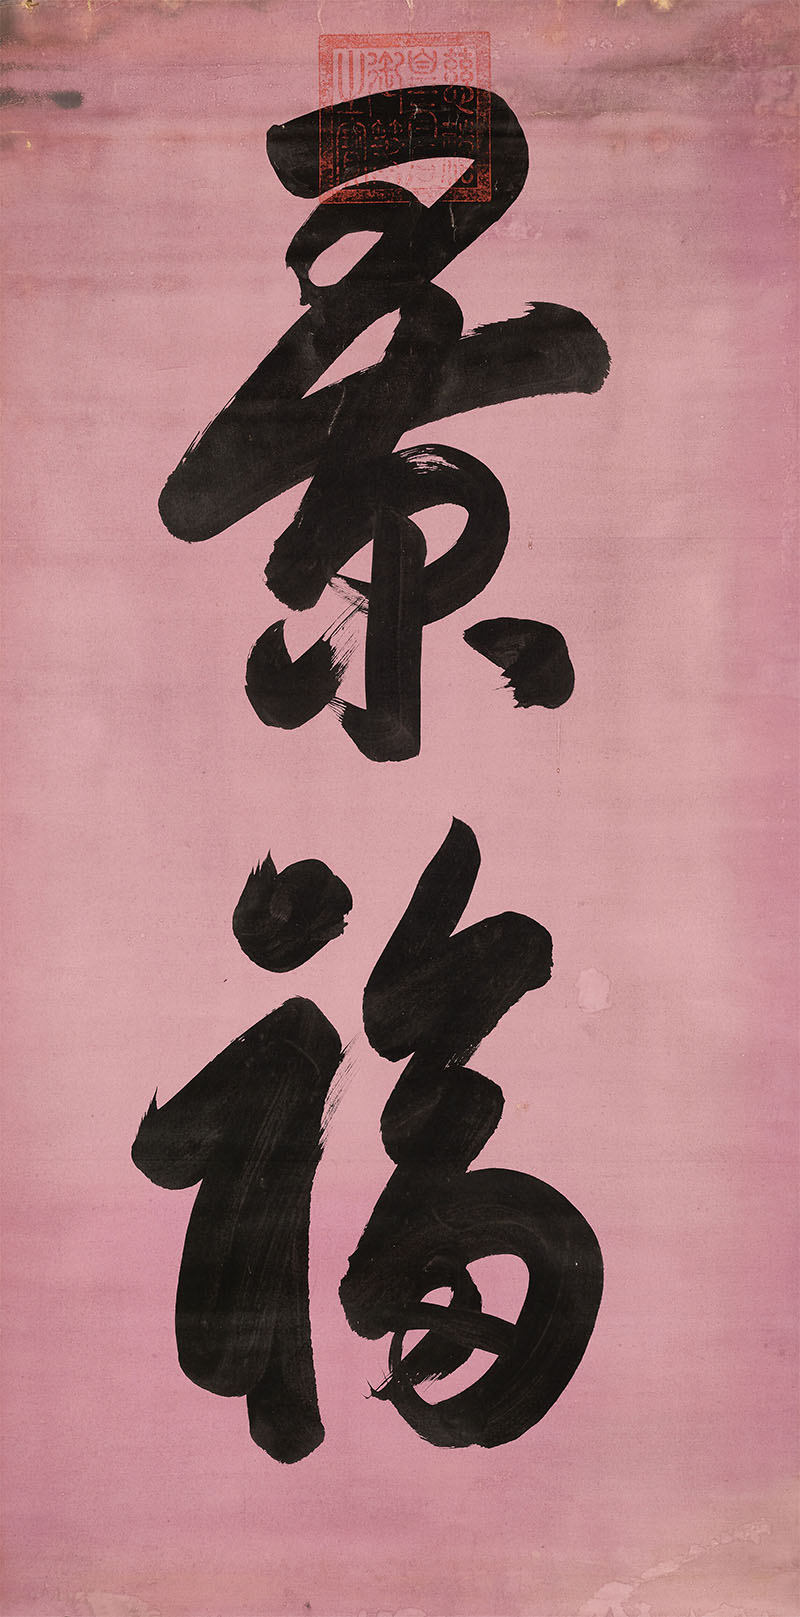 慈禧皇太后御筆之寶
景福